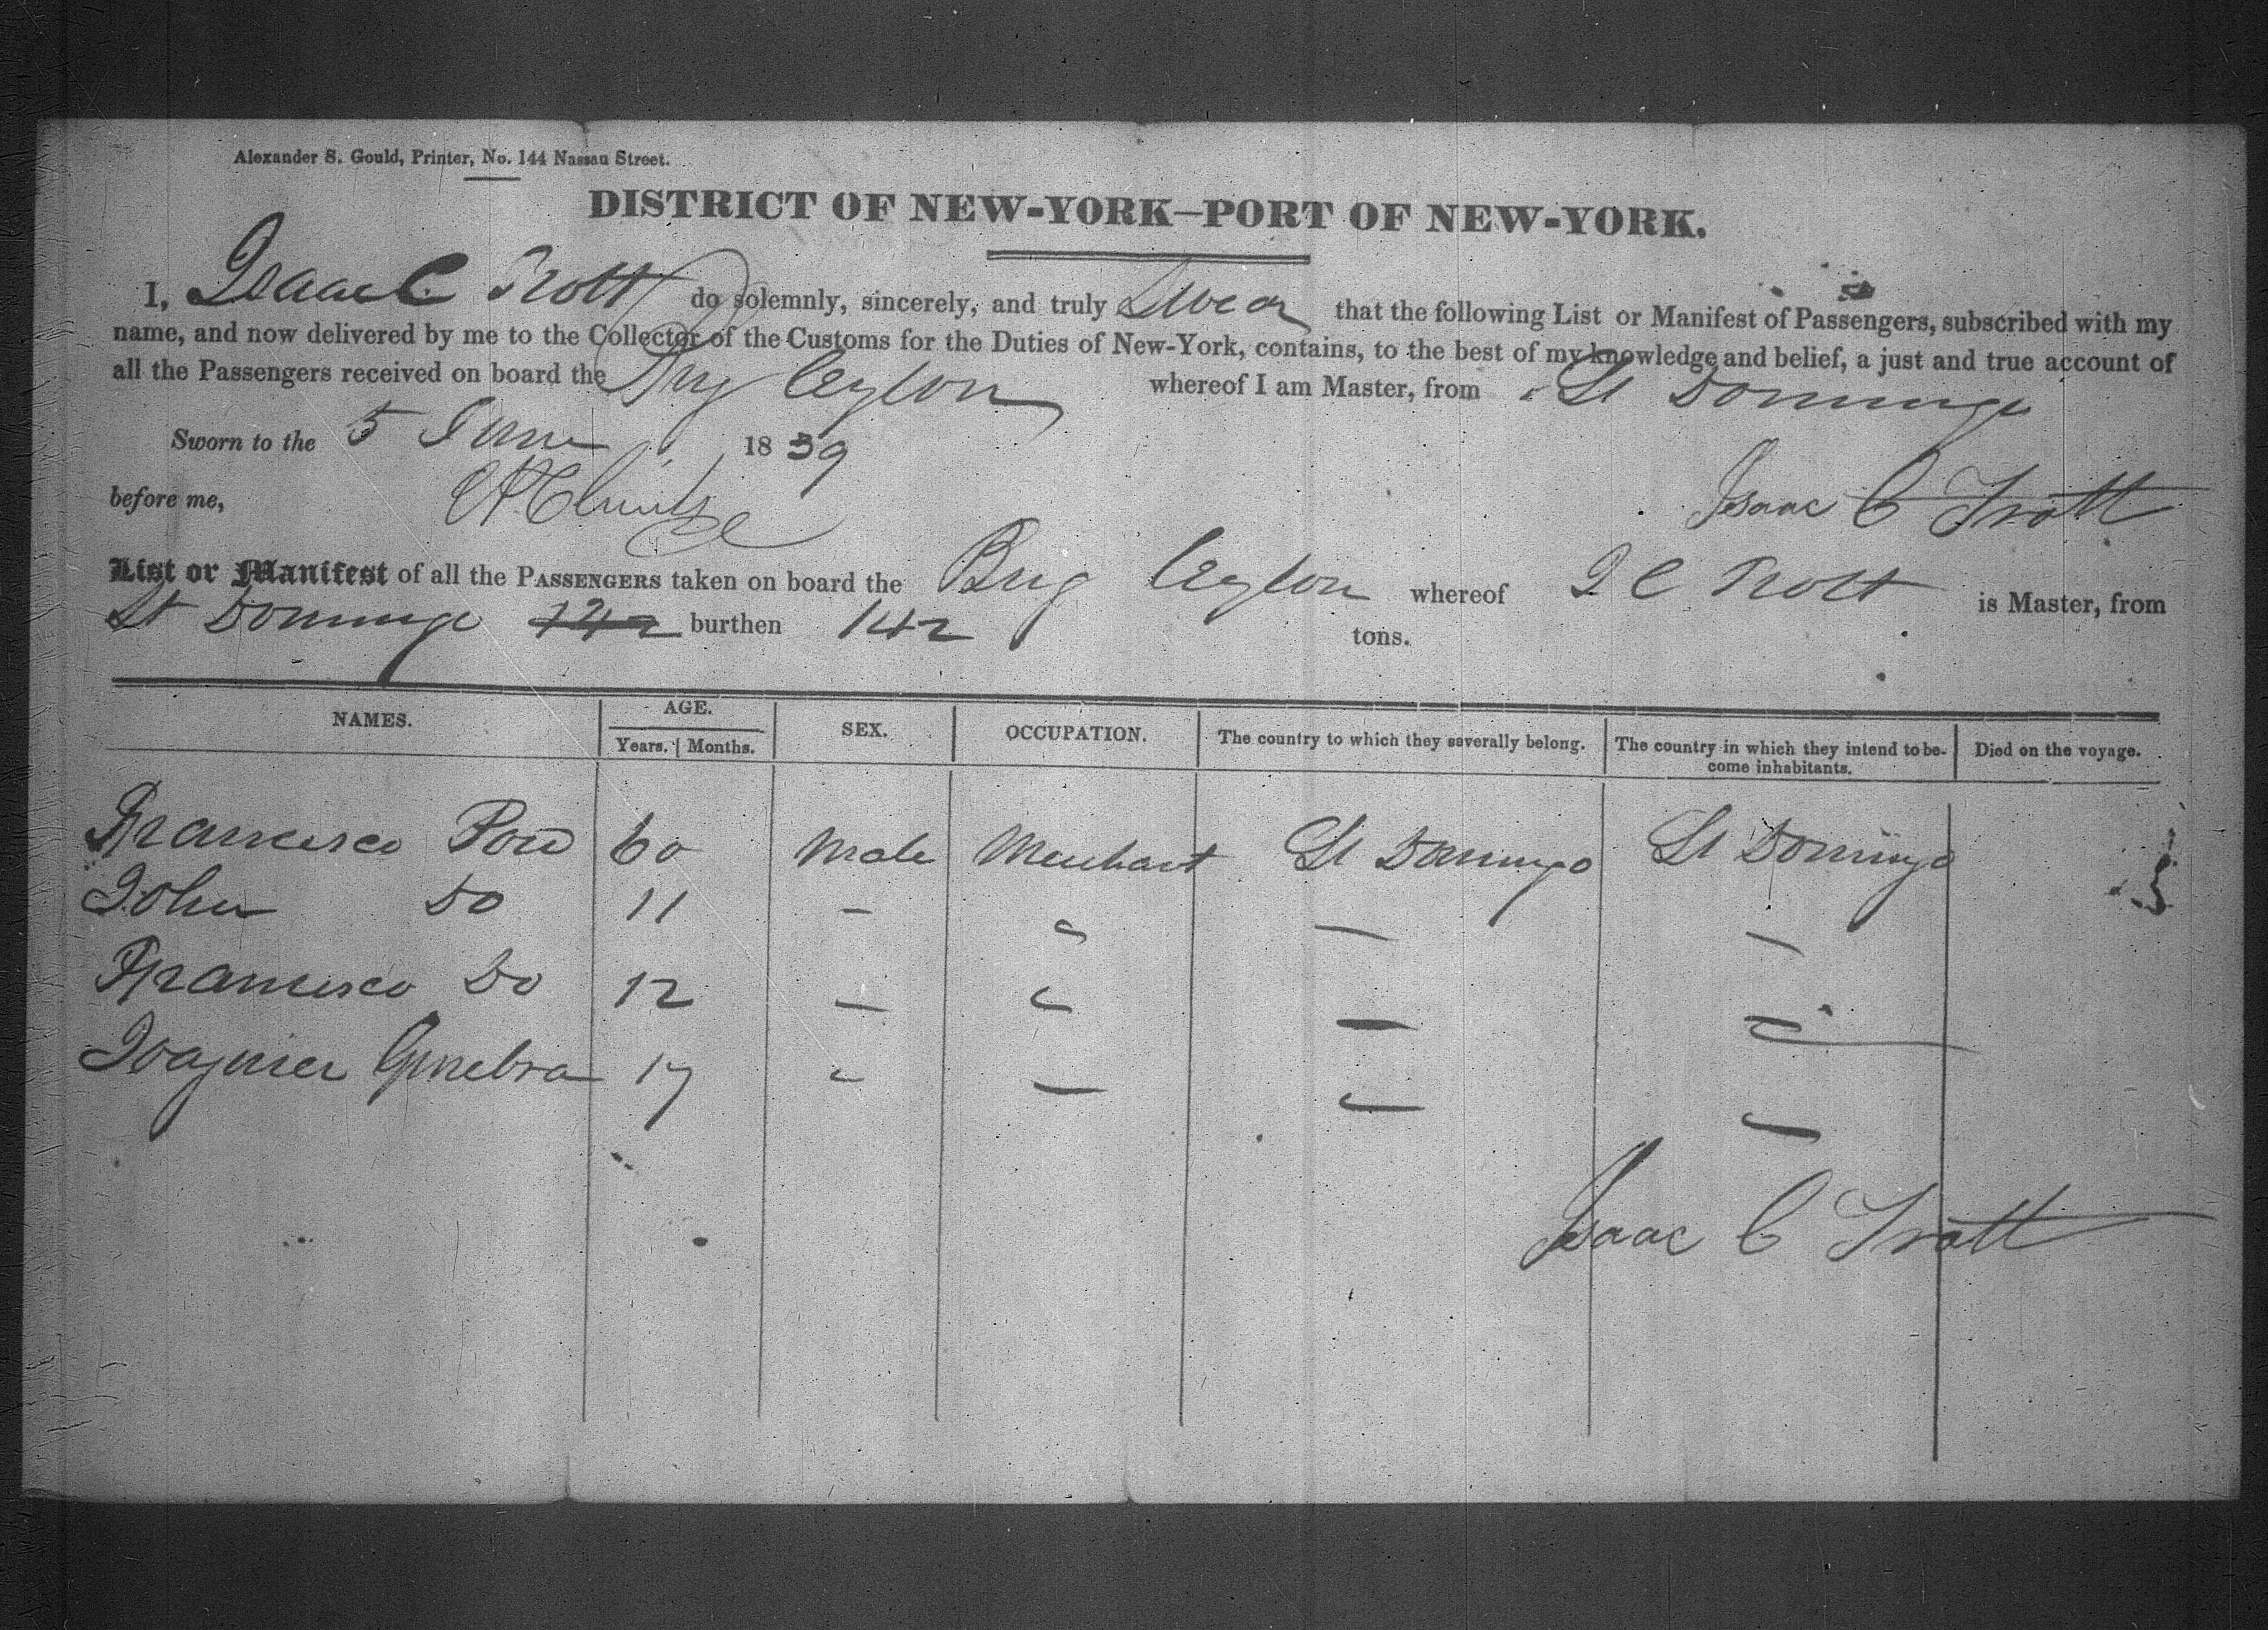 Alexander S. Gould, Printer, No. 144 Nassau Street.
DISTRICT OF NEW-YORK—PORT OF NEW-YORK.
I, Isaac C. Trott do solemnly, sincerely, and truly Swear that the following List or Manifest of Passengers, subscribed with my
name, and now delivered by me to the Collector of the Customs for the Duties of New-York, contains, to the best of my knowledge and belief, a just and true account of
all the Passengers received on board the Brig Ceylon whereof I am Master, from St Domingo
Sworn to the 5 June 1839
before me, Isaac C Trott
List or Manifest of all the PASSENGERS taken on board the Brig Ceylon whereof I C Trott is Master, from
St Domingo 142 burthen 142 tons.
NAMES. AGE. SEX. OCCUPATION. The country to which they severally belong. The country in which they intend to be- Died on the voyage.
Years. Months. come inhabitants.
Francisco 60 Male Merchant St Domingo St Domingo
John Do 11 — " — —
Francisco Do 12 — " — —
Ginebra 17 " — — —
Isaac C Trott